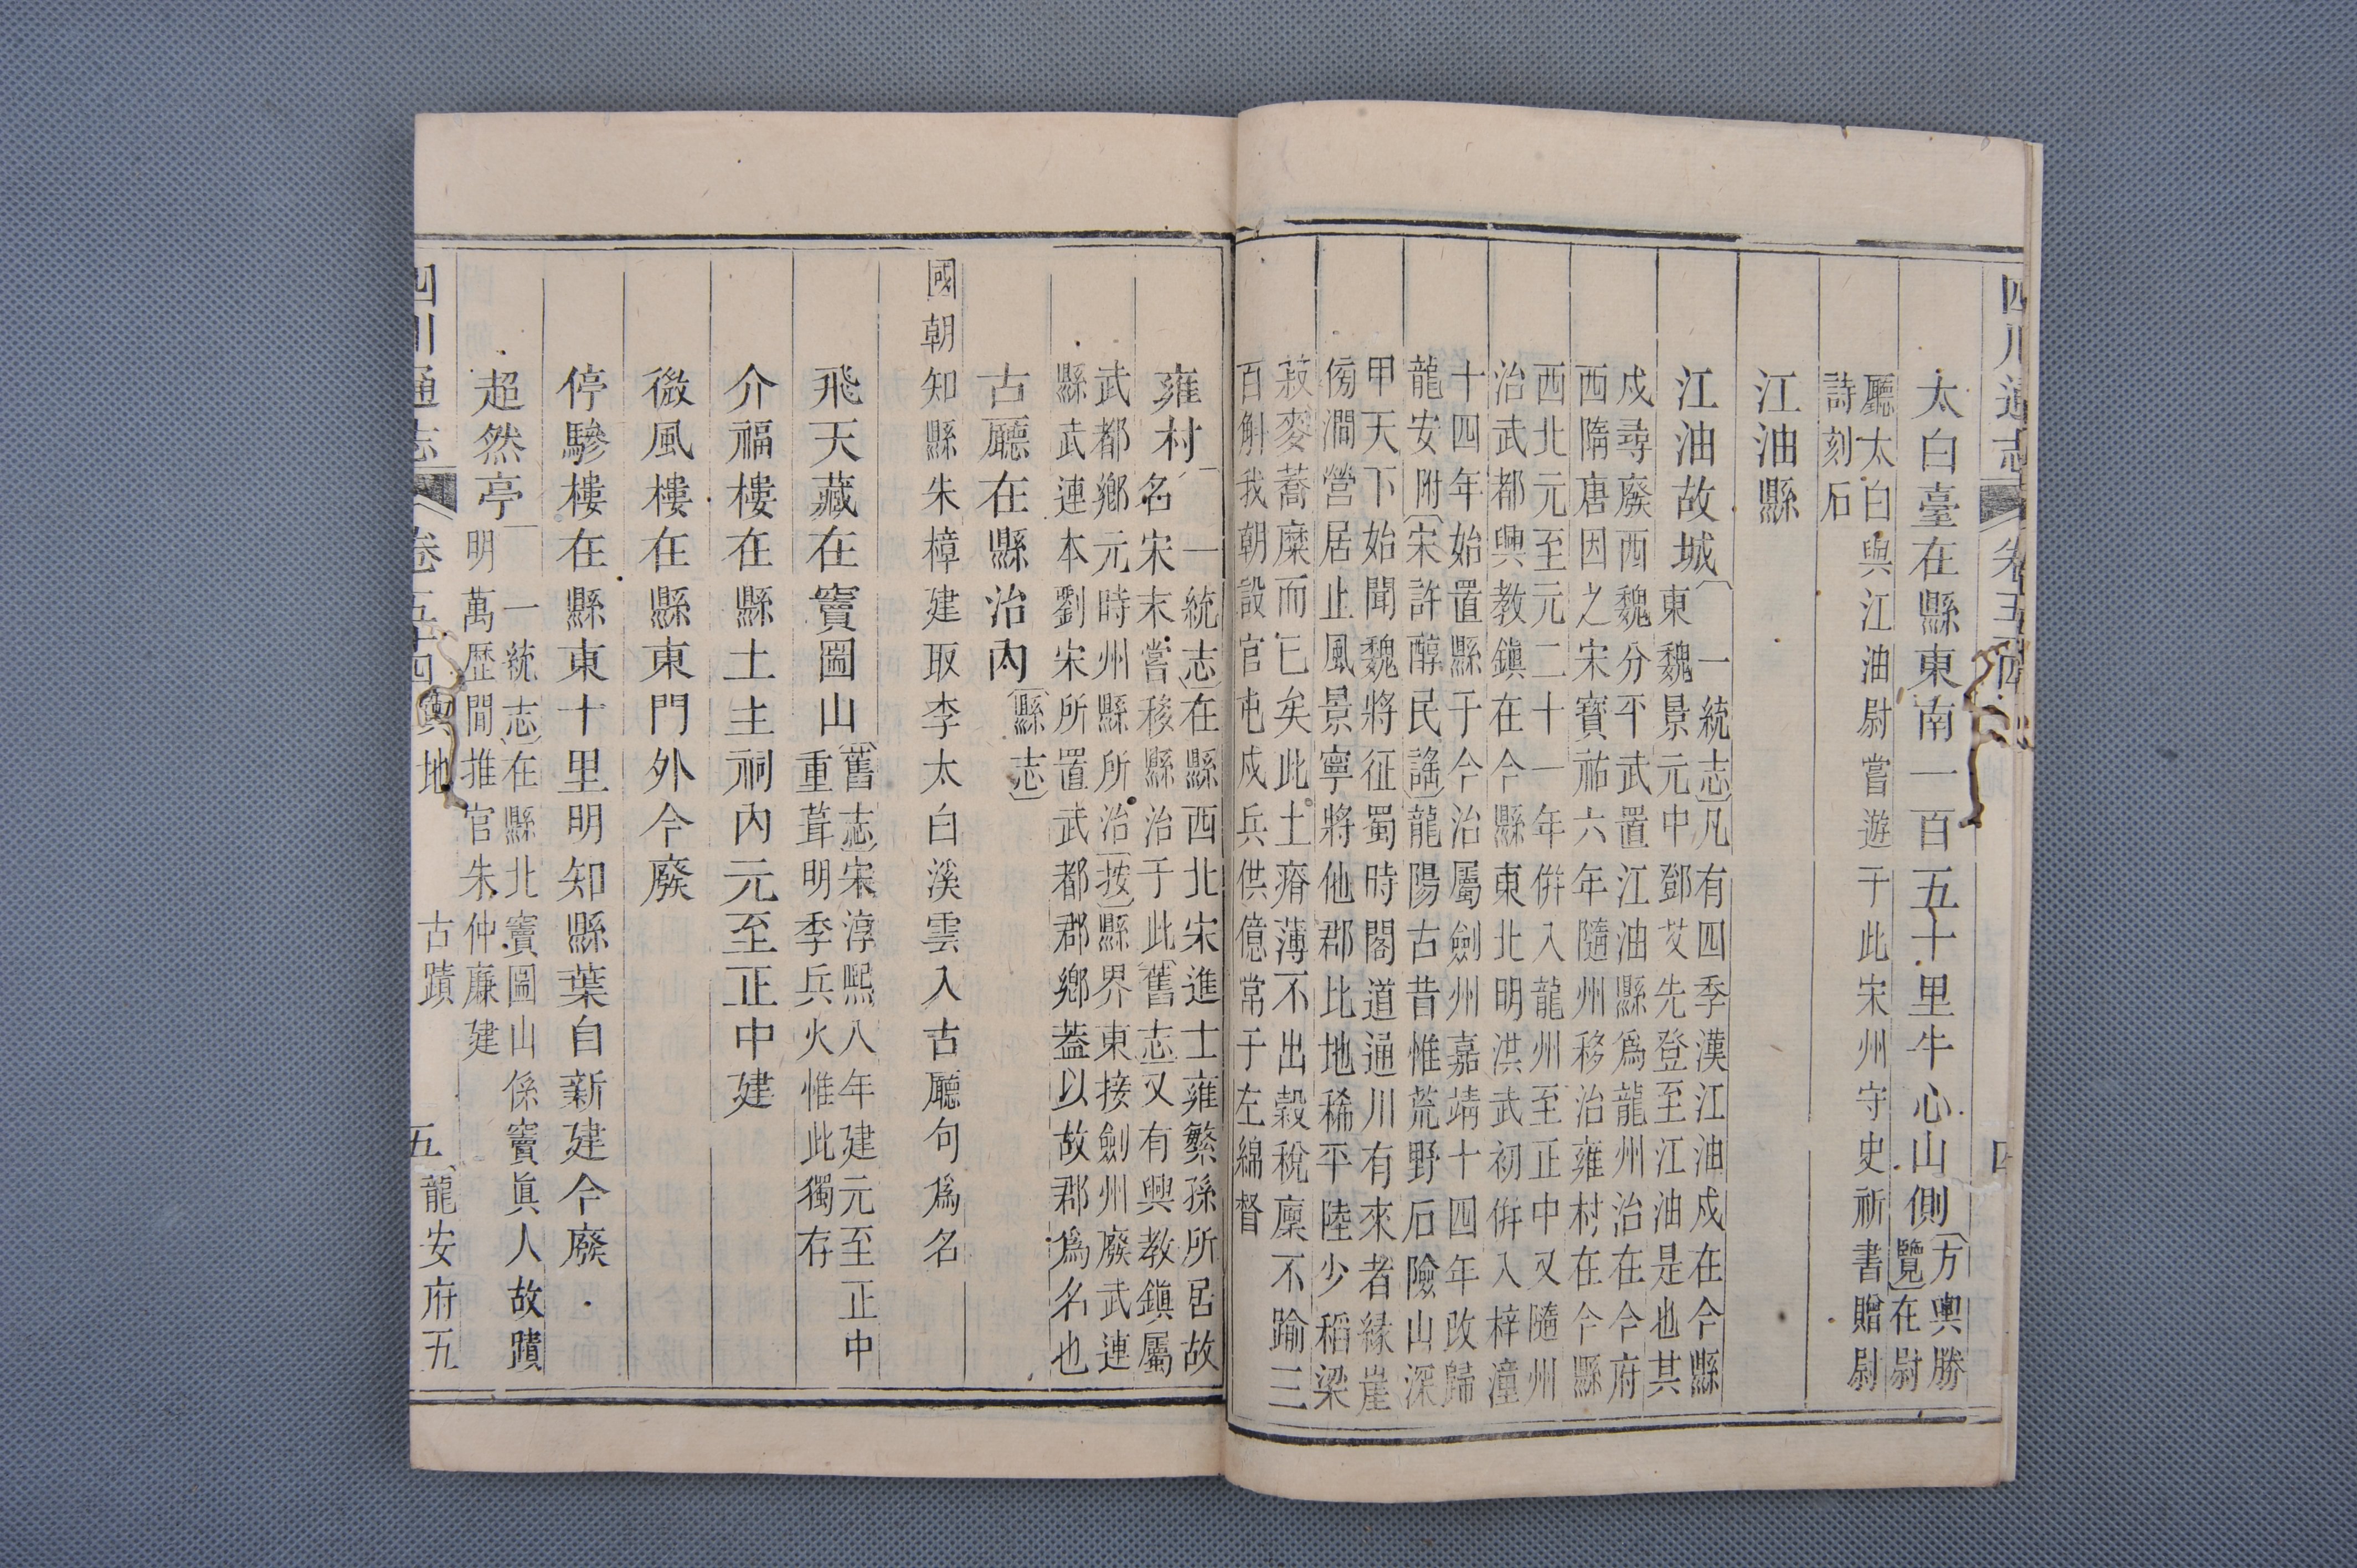 四川通志
卷五
四
太白臺在縣東南一百五十里牛心山側〔方輿勝
覽〕在尉
廳太白與江油尉嘗遊于此宋州守史祈書贈尉
詩刻石
江油縣
江油故城〔一統志〕凡有四季漢江油戍在今縣
東魏景元中鄧艾先登至江油是也其
戍尋廢西魏分平武置江油縣爲龍州治在今府
西隋唐因之宋寶祐六年隨州移治雍村在今縣
西北元至元二十一年併入龍州至正中又隨州
治武都興教鎮在今縣東北明洪武初併入梓潼
十四年始置縣于今治屬劍州嘉靖十四年改歸
龍安附〔宋許醇民謠〕龍陽古昔惟荒野石險山深
甲天下始聞魏將征蜀時閣道通川有來者緣崖
傍澗營居止風景寧將他郡比地稀平陸少稻梁
菽麥蕎糜而已矣此土瘠薄不出穀稅廩不踰三
百斛我朝設官屯戍兵供億常于左綿督
雍村〔一統志〕在縣西北宋進士雍繁孫所居故
名宋末嘗移縣治于此〔舊志〕又有興教鎮屬
武都鄉元時州縣所治〔按〕縣界東接劍州廢武連
縣武連本劉宋所置武都郡鄉葢以故郡爲名也
古廳在縣治內〔縣志〕
國朝知縣朱樟建取李太白溪雲入古廳句爲名
飛天藏在竇圌山〔舊志〕宋淳熙八年建元至正中
重葺明季兵火惟此獨存
介福樓在縣土主祠內元至正中建
微風樓在縣東門外今廢
停驂樓在縣東十里明知縣葉自新建今廢
超然亭〔一統志〕在縣北竇圌山係竇眞人故蹟
明萬歷間推官朱仲廉建
四川通志
卷五十四輿地
古蹟
五
龍安府五